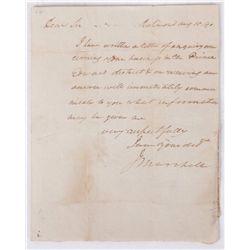 Dear Sir
I have written a letter of enquiry con
cerning your business in the Prince
Edward district & on receiving an
answer will immediately commu
nicate to you what information
may be given me
very respectfully
I am your obedt
J Marshall